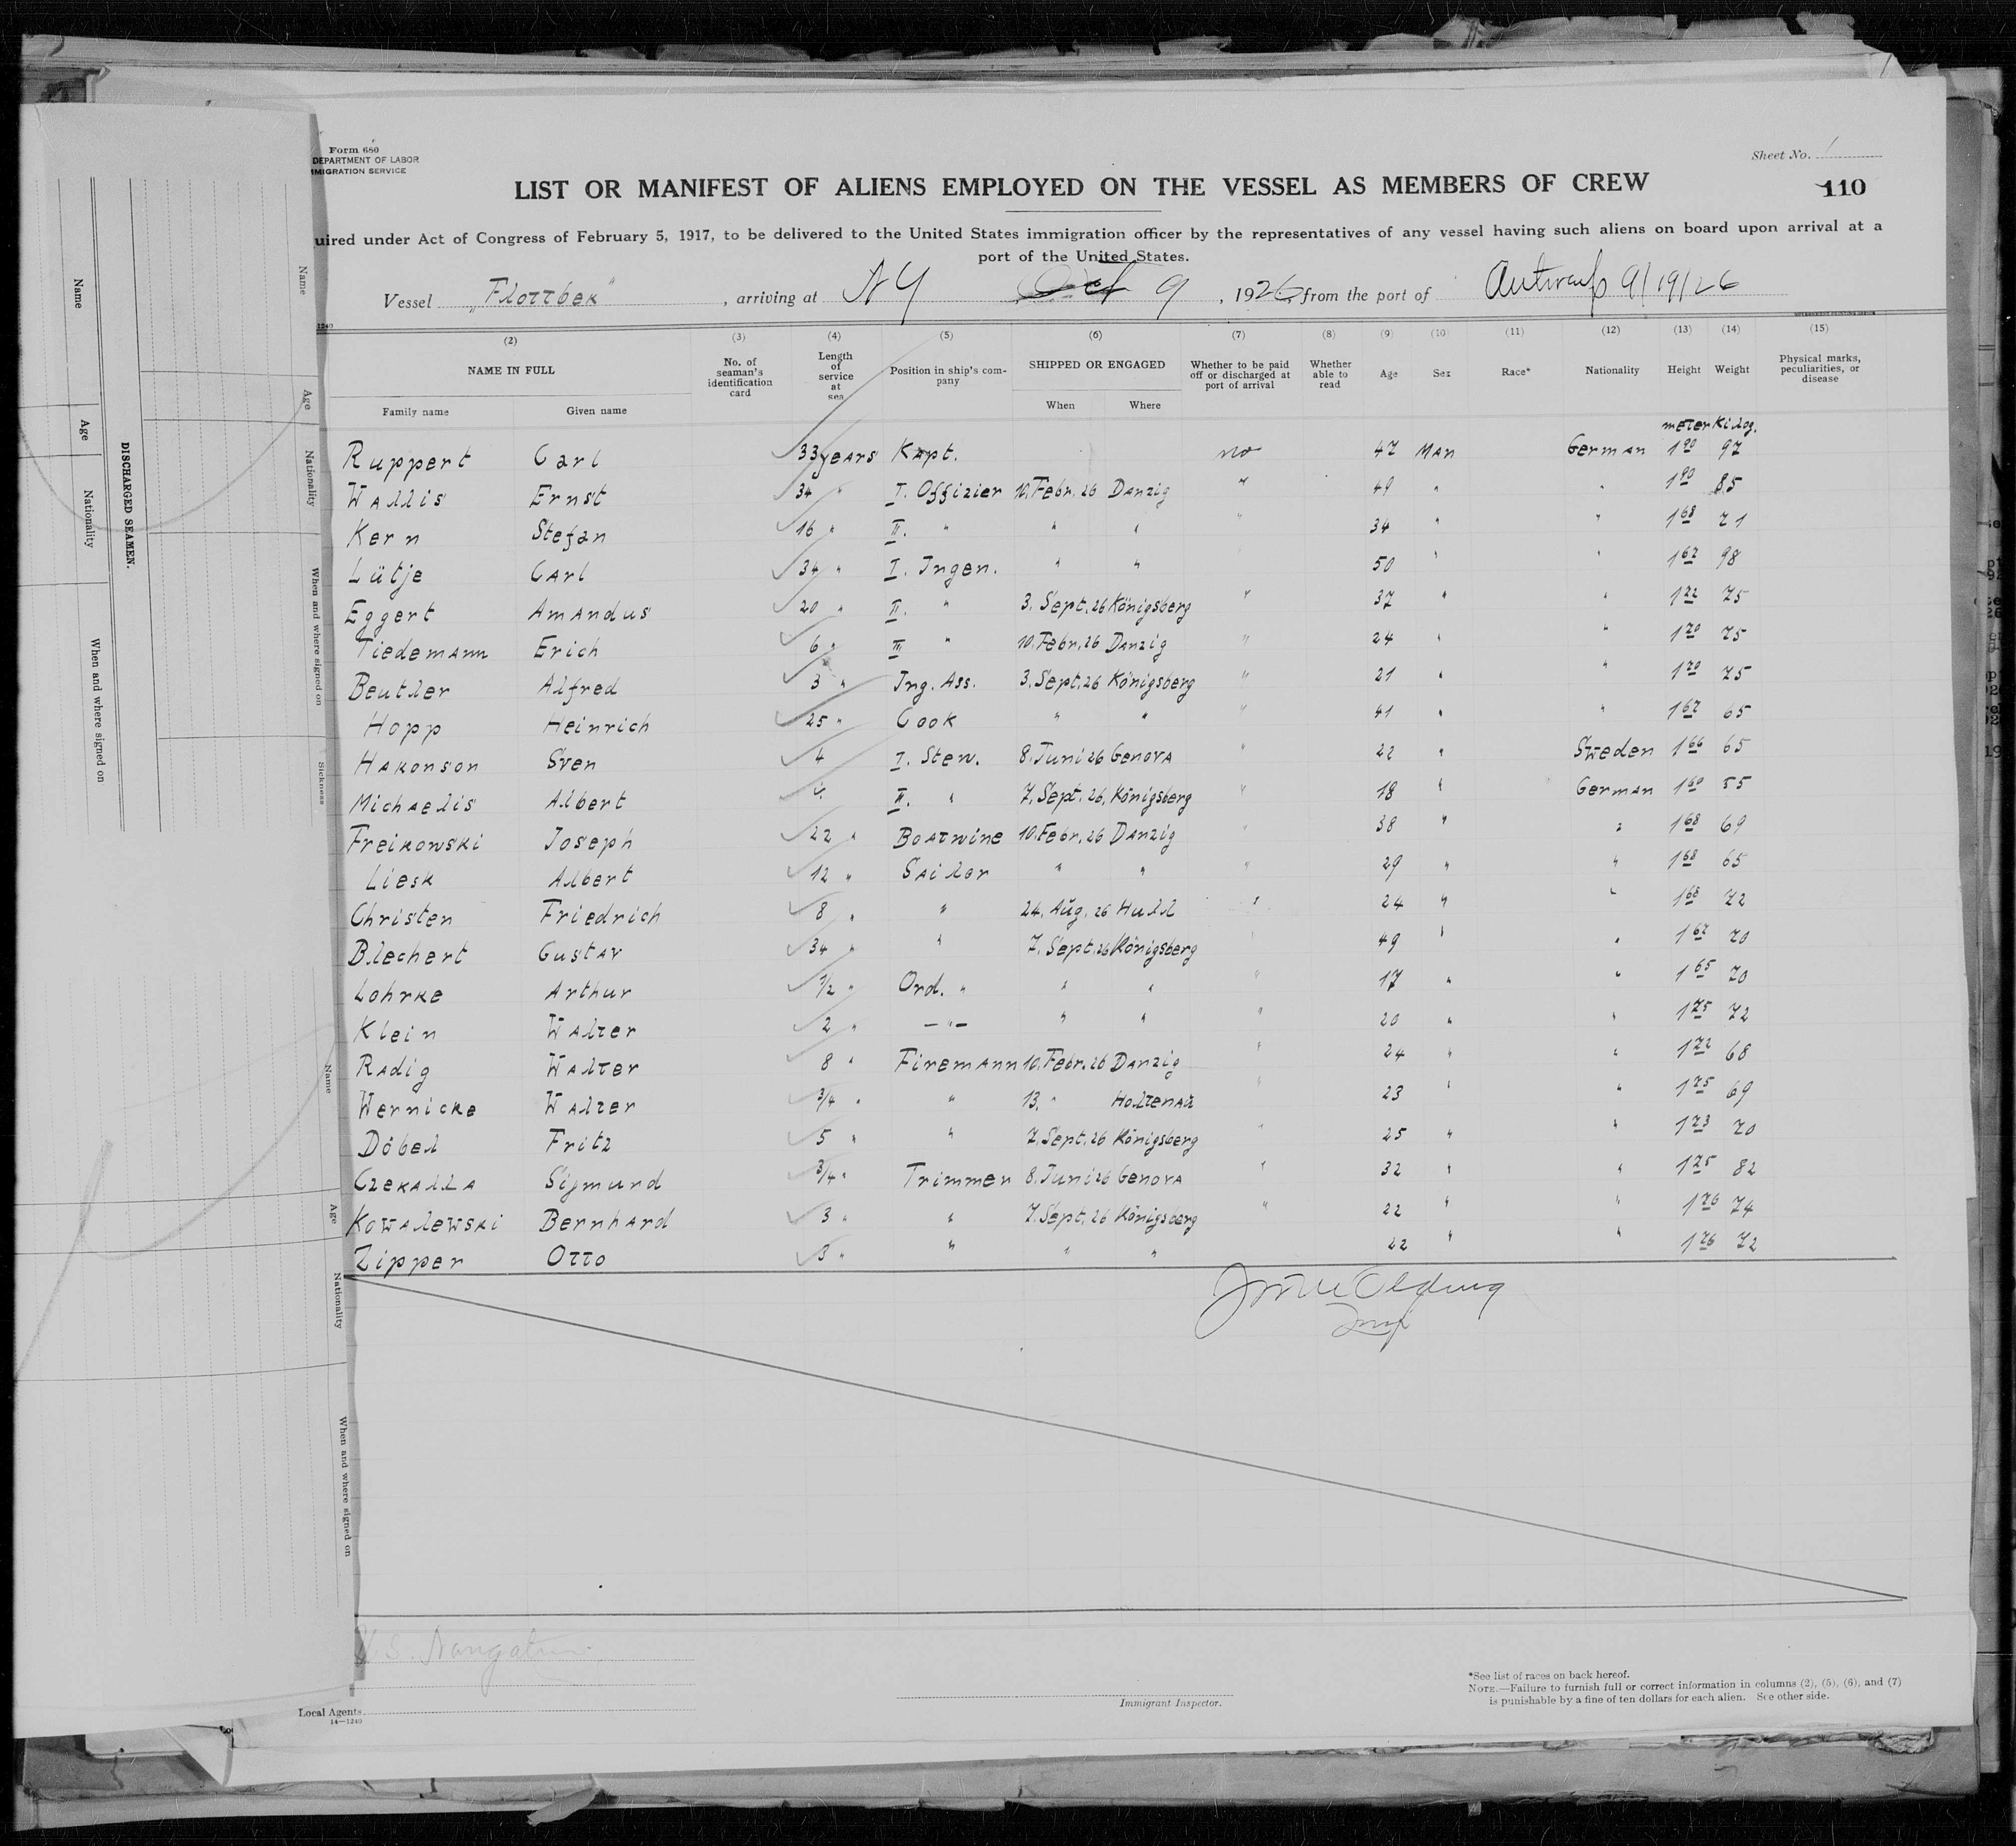 Form 680
DEPARTMENT OF LABOR
MMIGRATION SERVICE
Sheet No. 1
110
LIST OR MANIFEST OF ALIENS EMPLOYED ON THE VESSEL AS MEMBERS OF CREW
uired under Act of Congress of February 5, 1917, to be delivered to the United States immigration officer by the representatives of any vessel having such aliens on board upon arrival at a
port of the United States.
Vessel „Flottbek“, arriving at NY Oct 9, 1926, from the port of Antwerp 9/19/26
1240
(2) (3) (4) (5) (6) (7) (8) (9) (10) (11) (12) (13) (14) (15)
NAME IN FULL No. of seaman's identification card Length of service at sea Position in ship's company SHIPPED OR ENGAGED Whether to be paid off or discharged at port of arrival Whether able to read Age Sex Race* Nationality Height Weight Physical marks, peculiarities, or disease
Family name Given name When Where
meter Kilog.
Ruppert Carl 33 years Kapt. no 47 Man German 1 90 97
Wallis Ernst 34 " I. Offizier 10. Febr. 26 Danzig " 49 " " 1 90 85
Kern Stefan 16 " II. " " " " 34 " " 1 68 71
Lütje Carl 34 " I. Ingen. " " 50 " " 1 67 98
Eggert Amandus 20 " II. " 3. Sept. 26 Königsberg " 37 " " 1 72 75
Tiedemann Erich 6 " III " 10. Febr. 26 Danzig " 24 " " 1 70 75
Beutler Alfred 3 " Ing. Ass. 3. Sept. 26 Königsberg " 21 " " 1 70 75
Hopp Heinrich 25 " Cook " " " 41 " " 1 67 65
Hakonson Sven 4 I. Stew. 8. Juni 26 Genova " 22 " Sweden 1 66 65
Michaelis Albert 4. II. " 7. Sept. 26. Königsberg " 18 " German 1 60 55
Freikowski Joseph 22 " Boatwine 10. Febr. 26 Danzig " 38 " " 1 68 69
Liesk Albert 12 " Sailor " " " 29 " " 1 68 65
Christen Friedrich 8 " " 24. Aug. 26 Hull " 24 " " 1 68 72
Blechert Gustav 34 " " 7. Sept. 26 Königsberg " 49 " " 1 67 70
Lohrke Arthur 1/2 " Ord. " " " " 17 " " 1 65 70
Klein Walter 2 " —"— " " " 20 " " 1 75 72
Radig Walter 8 " Firemann 10. Febr. 26 Danzig " 24 " " 1 72 68
Wernicke Walter 3/4 " " 13. " Holtenau " 23 " " 1 75 69
Döbel Fritz 5 " " 7. Sept. 26 Königsberg " 25 " " 1 73 70
Czekalla Sigmund 3/4 " Trimmer 8. Juni 26 Genova " 32 " " 1 75 82
Kowalewski Bernhard 3 " " 7. Sept. 26 Königsberg " 22 " " 1 76 74
Zipper Otto 3 " " " " 22 " " 1 76 72
Local Agents
14—1240
Immigrant Inspector.
*See list of races on back hereof.
NOTE.—Failure to furnish full or correct information in columns (2), (5), (6), and (7)
is punishable by a fine of ten dollars for each alien. See other side.
DISCHARGED SEAMEN.
Name
Age
Nationality
When and where signed on
Name
Age
Nationality
When and where signed on
Sickness
Name
Age
Nationality
When and where signed on